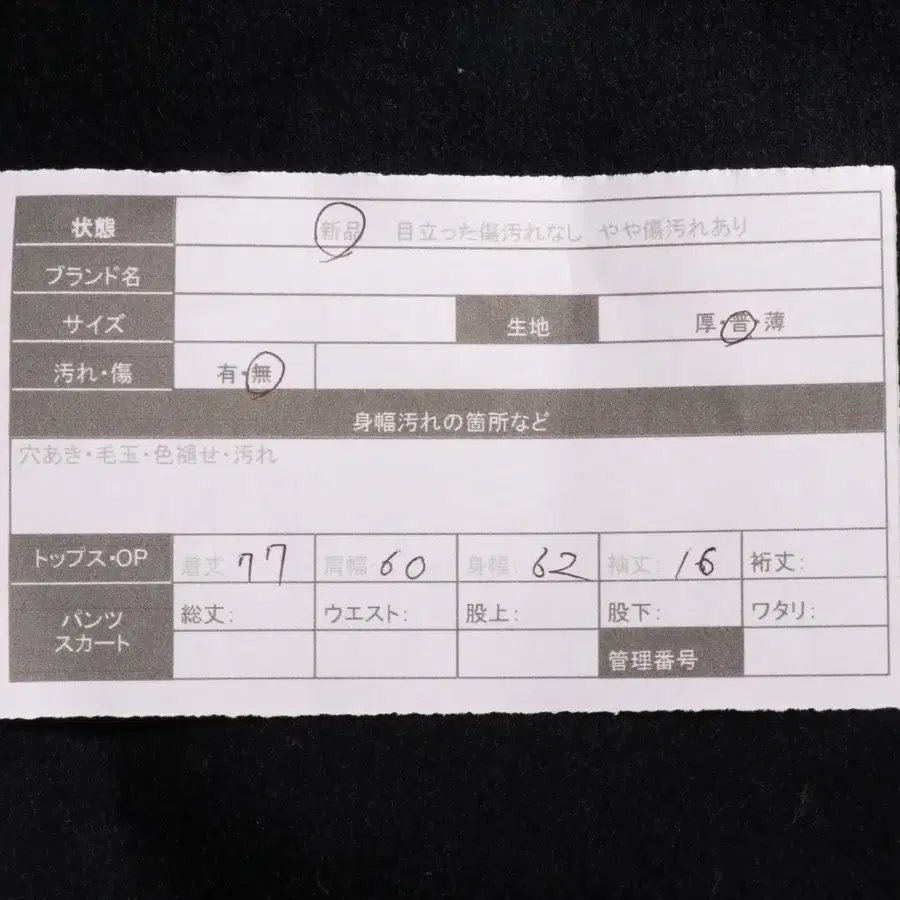 状態 新品 目立った傷汚れなし やや傷汚れあり
ブランド名
サイズ 生地 厚・普・薄
汚れ・傷 有・無
身幅汚れの箇所など
穴あき・毛玉・色褪せ・汚れ
トップス・OP 着丈 77 肩幅: 60 身幅: 62 袖丈: 16 裄丈:
パンツ スカート 総丈: ウエスト: 股上: 股下: ワタリ:
管理番号